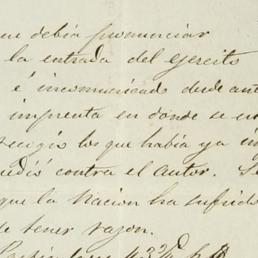 ue debia pronunciar
la entrada del ejercito
é incomunicado desde ante
imprenta en donde se en
ecogió los que habia ya im
cedió contra el autor. Se
que la Nacion ha sufrido
de tener razon.